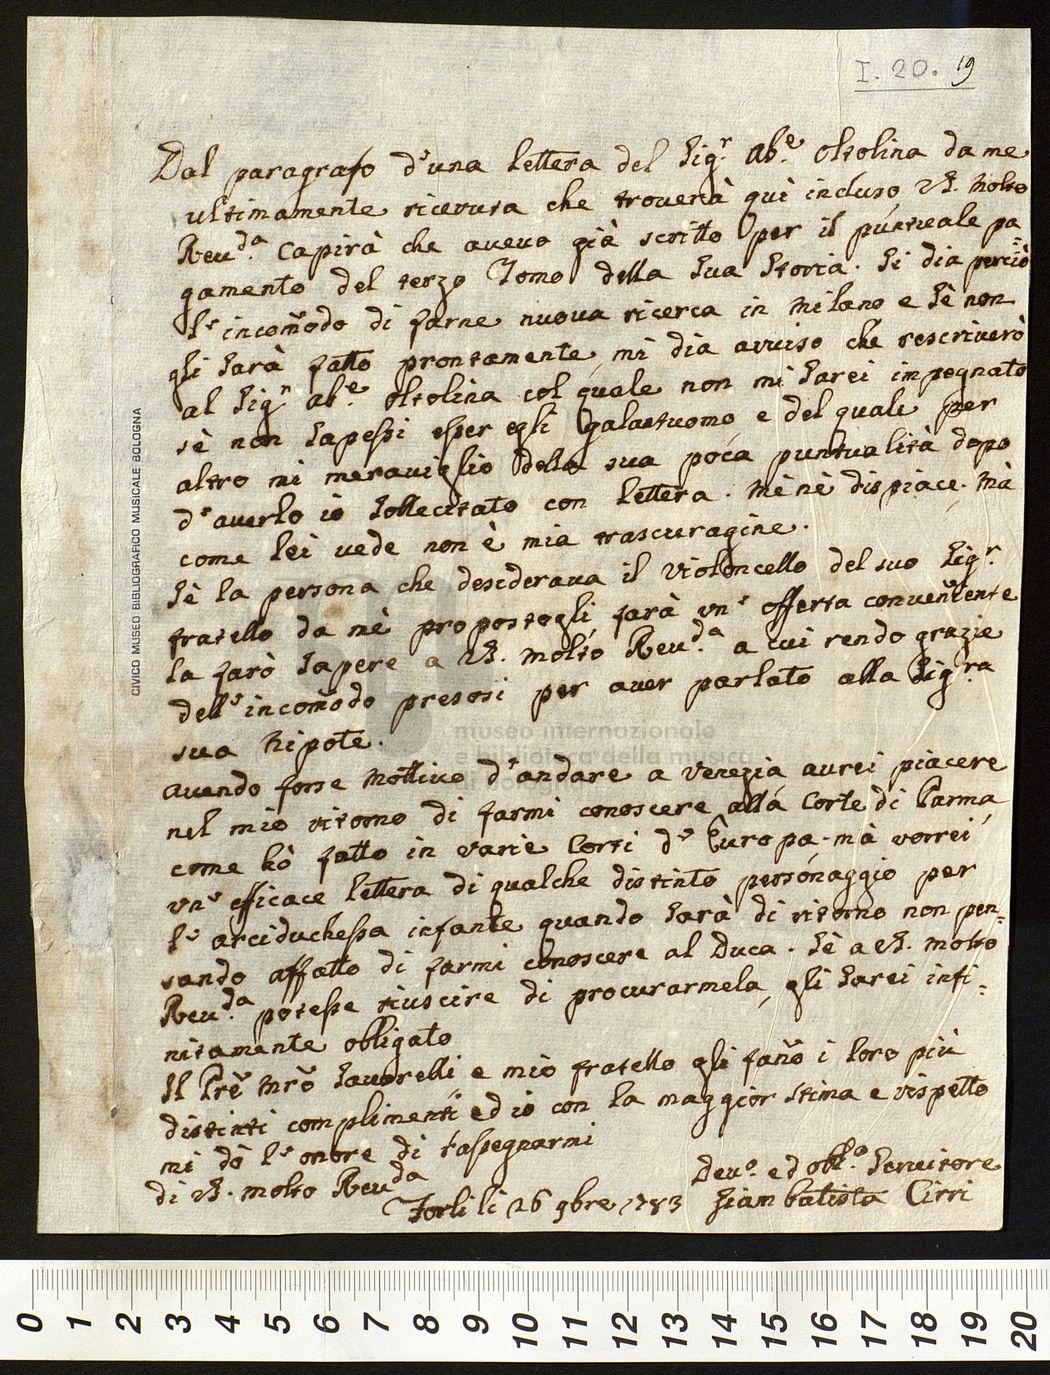 I. 20. 19
Dal paragrafo d'una lettera del Sig.r Ab.e Oltolina da me
ultimamente ricevuta che troverà quì incluso V.S. Molto
Reu.da capirà che avevo già scritto per il puntuale pa=
gamento del terzo Tomo della Sua Storia. Si dia perciò
l'incom̃odo di farne nuova ricerca in Milano e Sè non
gli Sarà fatto prontamente mi dia avviso che rescriverò
al Sig.r Ab.e Oltolina col quale non mi Sarei inpegnato
sè non Sapessi esser egli Galantuomo e del quale per
altro mi meraviglio della sua poca puntualità dopo
d'averlo io Sollecitato con lettera. Mè nè dispiace. Mà
come lei vede non è mia trascuragine.
Sè la persona che desiderava il violoncello del suo Sig.r
fratello da mè propostogli farà un' offerta conveniente
la farò Sapere a V.S. Molto Reu.da a cui rendo grazie
dell'incom̃odo presosi per aver parlato alla Sig.ra
sua Nipote.
avendo forse Mottivo d'andare a Venezia avrei piacere
nel mio ritorno di farmi conoscere alla Corte di Parma
come hò fatto in varie Corti d'Europa. mà vorrei
un' efficace lettera di qualche distinto personaggio per
l'arciduchessa infante quando Sarà di ritorno non pen=
sando affatto di farmi conoscere al Duca. Sè a V.S. Molto
Reu.da potesse riuscire di procurarmela, gli Sarei infi=
nitamente obligato
Il Prẽ Mrõ Savorelli e mio fratello gli fañо i loro più
distinti complimenti ed io con la maggior stima e rispetto
mi dò l'onore di rassegnarmi
di V.S. molto Reu.da
Dev.o ed obl.o Servitore
Forlì li 26 9bre 1783 Giambatista Cirri
CIVICO MUSEO BIBLIOGRAFICO MUSICALE BOLOGNA
museo internazionale
e biblioteca della musica
di bologna
0 1 2 3 4 5 6 7 8 9 10 11 12 13 14 15 16 17 18 19 20